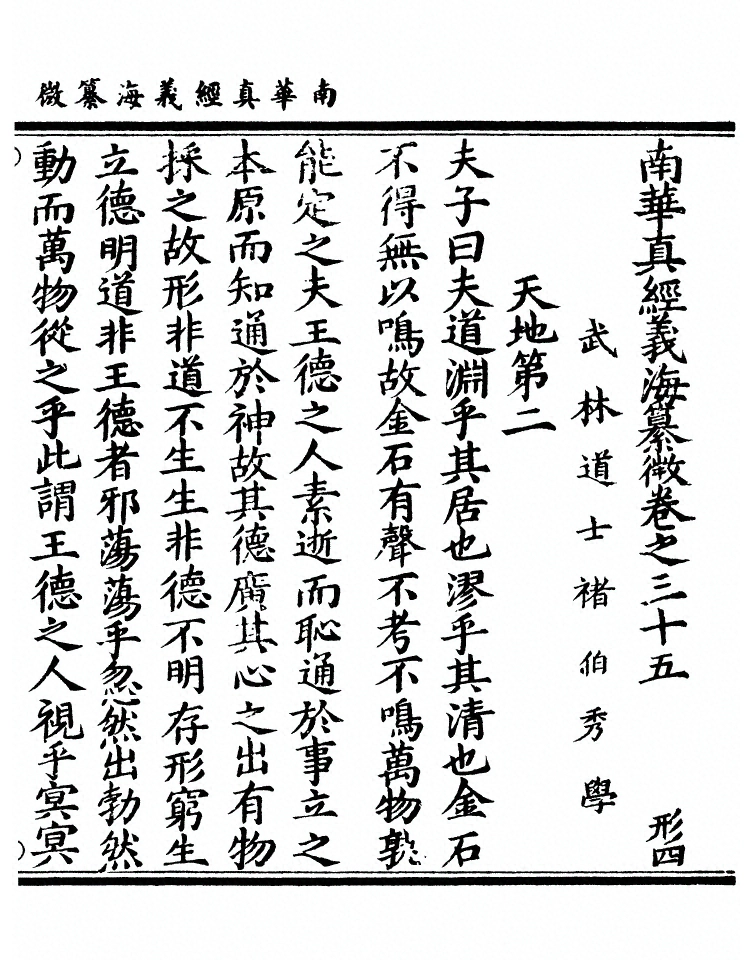 南華真經義海纂微
南華真經義海纂微卷之三十五 形四
武林道士褚伯秀學
天地第二
夫子曰夫道淵乎其居也漻乎其清也金石
不得無以鳴故金石有聲不考不鳴萬物孰
能定之夫王德之人素逝而恥通於事立之
本原而知通於神故其德廣其心之出有物
採之故形非道不生生非德不明存形窮生
立德明道非王德者邪蕩蕩乎忽然出勃然
動而萬物從之乎此謂王德之人視乎冥冥